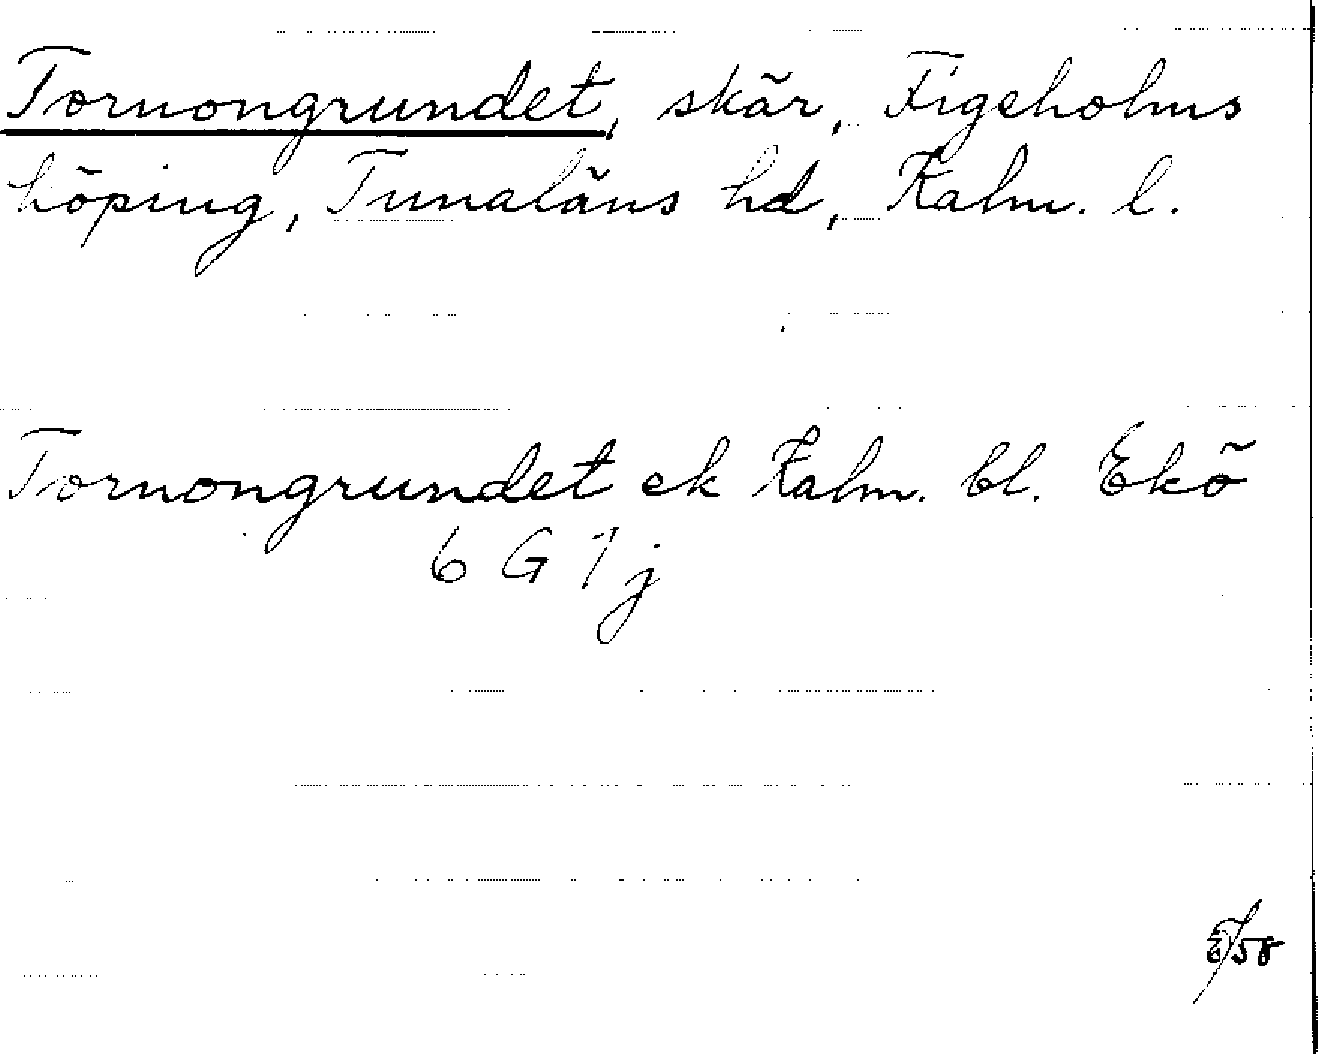 Tornongrundet, skär, Figeholms
köping, Tunaläns hd, Kalm. l.
Tornongrundet ek Kalm. bl. Ekö
6 G 1 j